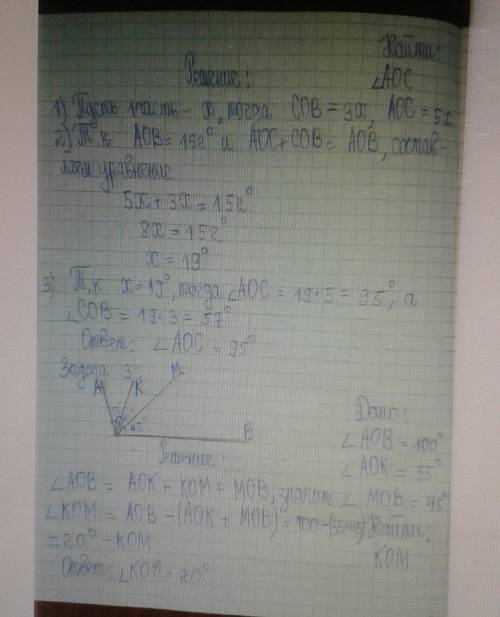 Найти:
Решение:
∠AOC
1) Пусть 1 часть - x, тогда COB = 3x, AOC = 5x
2) Т.к AOB = 152° и AOC + COB = AOB, состав-
уравнение
5x + 3x = 152°
8x = 152°
x = 19°
3) Т.к x = 19°, тогда ∠AOC = 19·5 = 95°, а
∠COB = 19·3 = 57°
Ответ: ∠AOC = 95°
Задача 3:
A K M
45°
B
Дано:
∠AOB = 100°
∠AOK = 35°
∠MOB = 45°
Найти:
KOM
Решение:
∠AOB = AOK + KOM + MOB, значит
∠KOM = AOB - (AOK + MOB) = 100 - (35+45)
= 20° - KOM
Ответ: ∠KOM = 20°